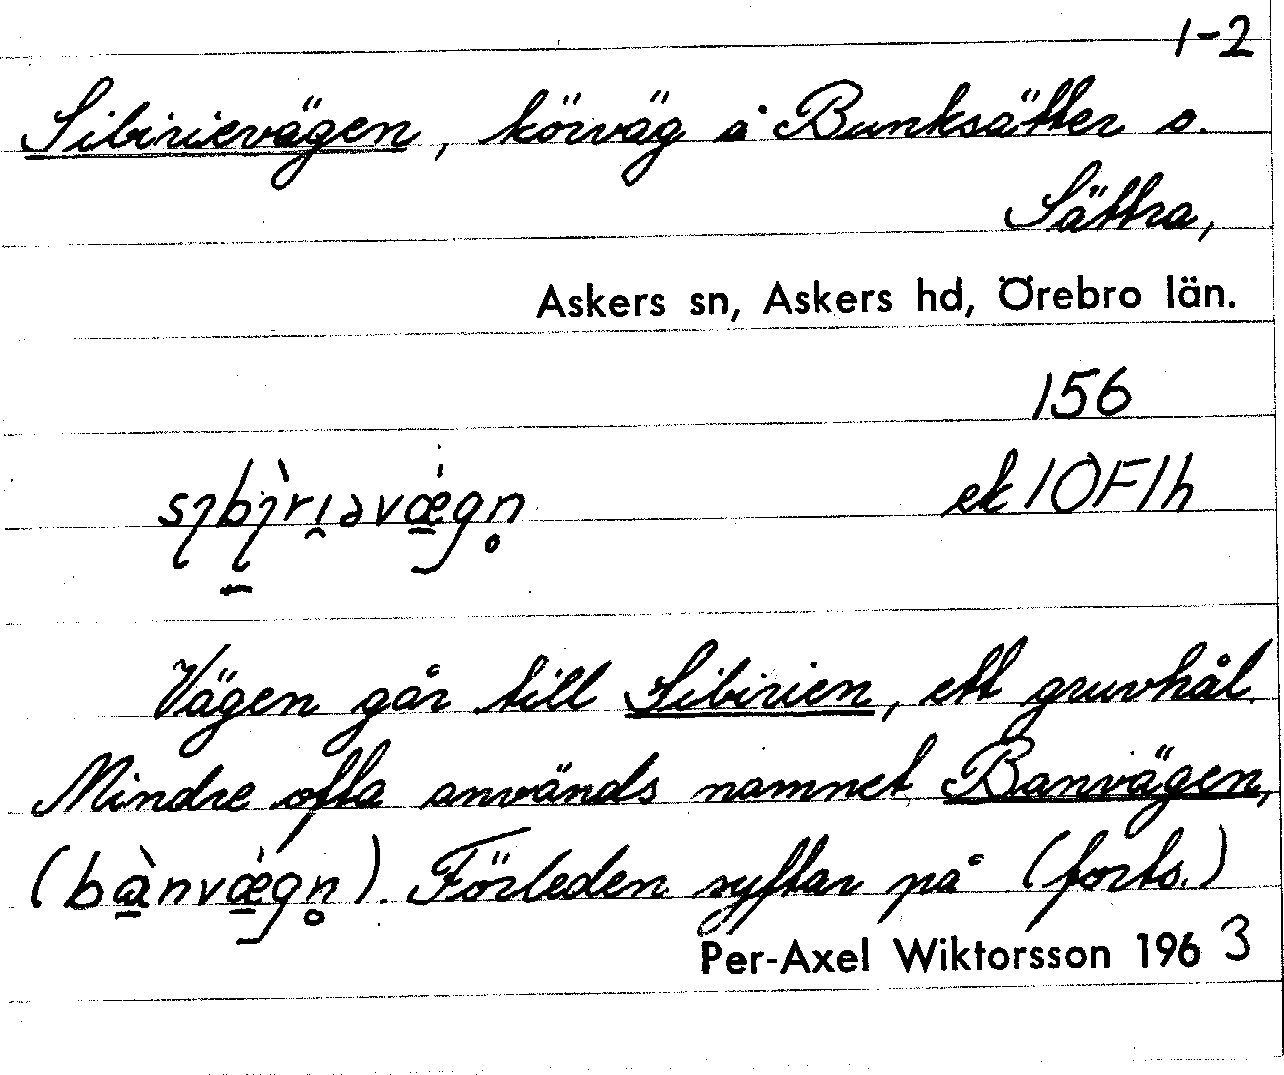 1-2
Sibirievägen, körväg å Bunksätter o.
Sättra,
Askers sn, Askers hd, Örebro län.
156
ek 10F1h
Vägen går till Sibirien, ett gruvhål.
Mindre ofta används namnet Banvägen,
(bànvǽgn̥). Förleden syftar på (forts.)
Per-Axel Wiktorsson 1963